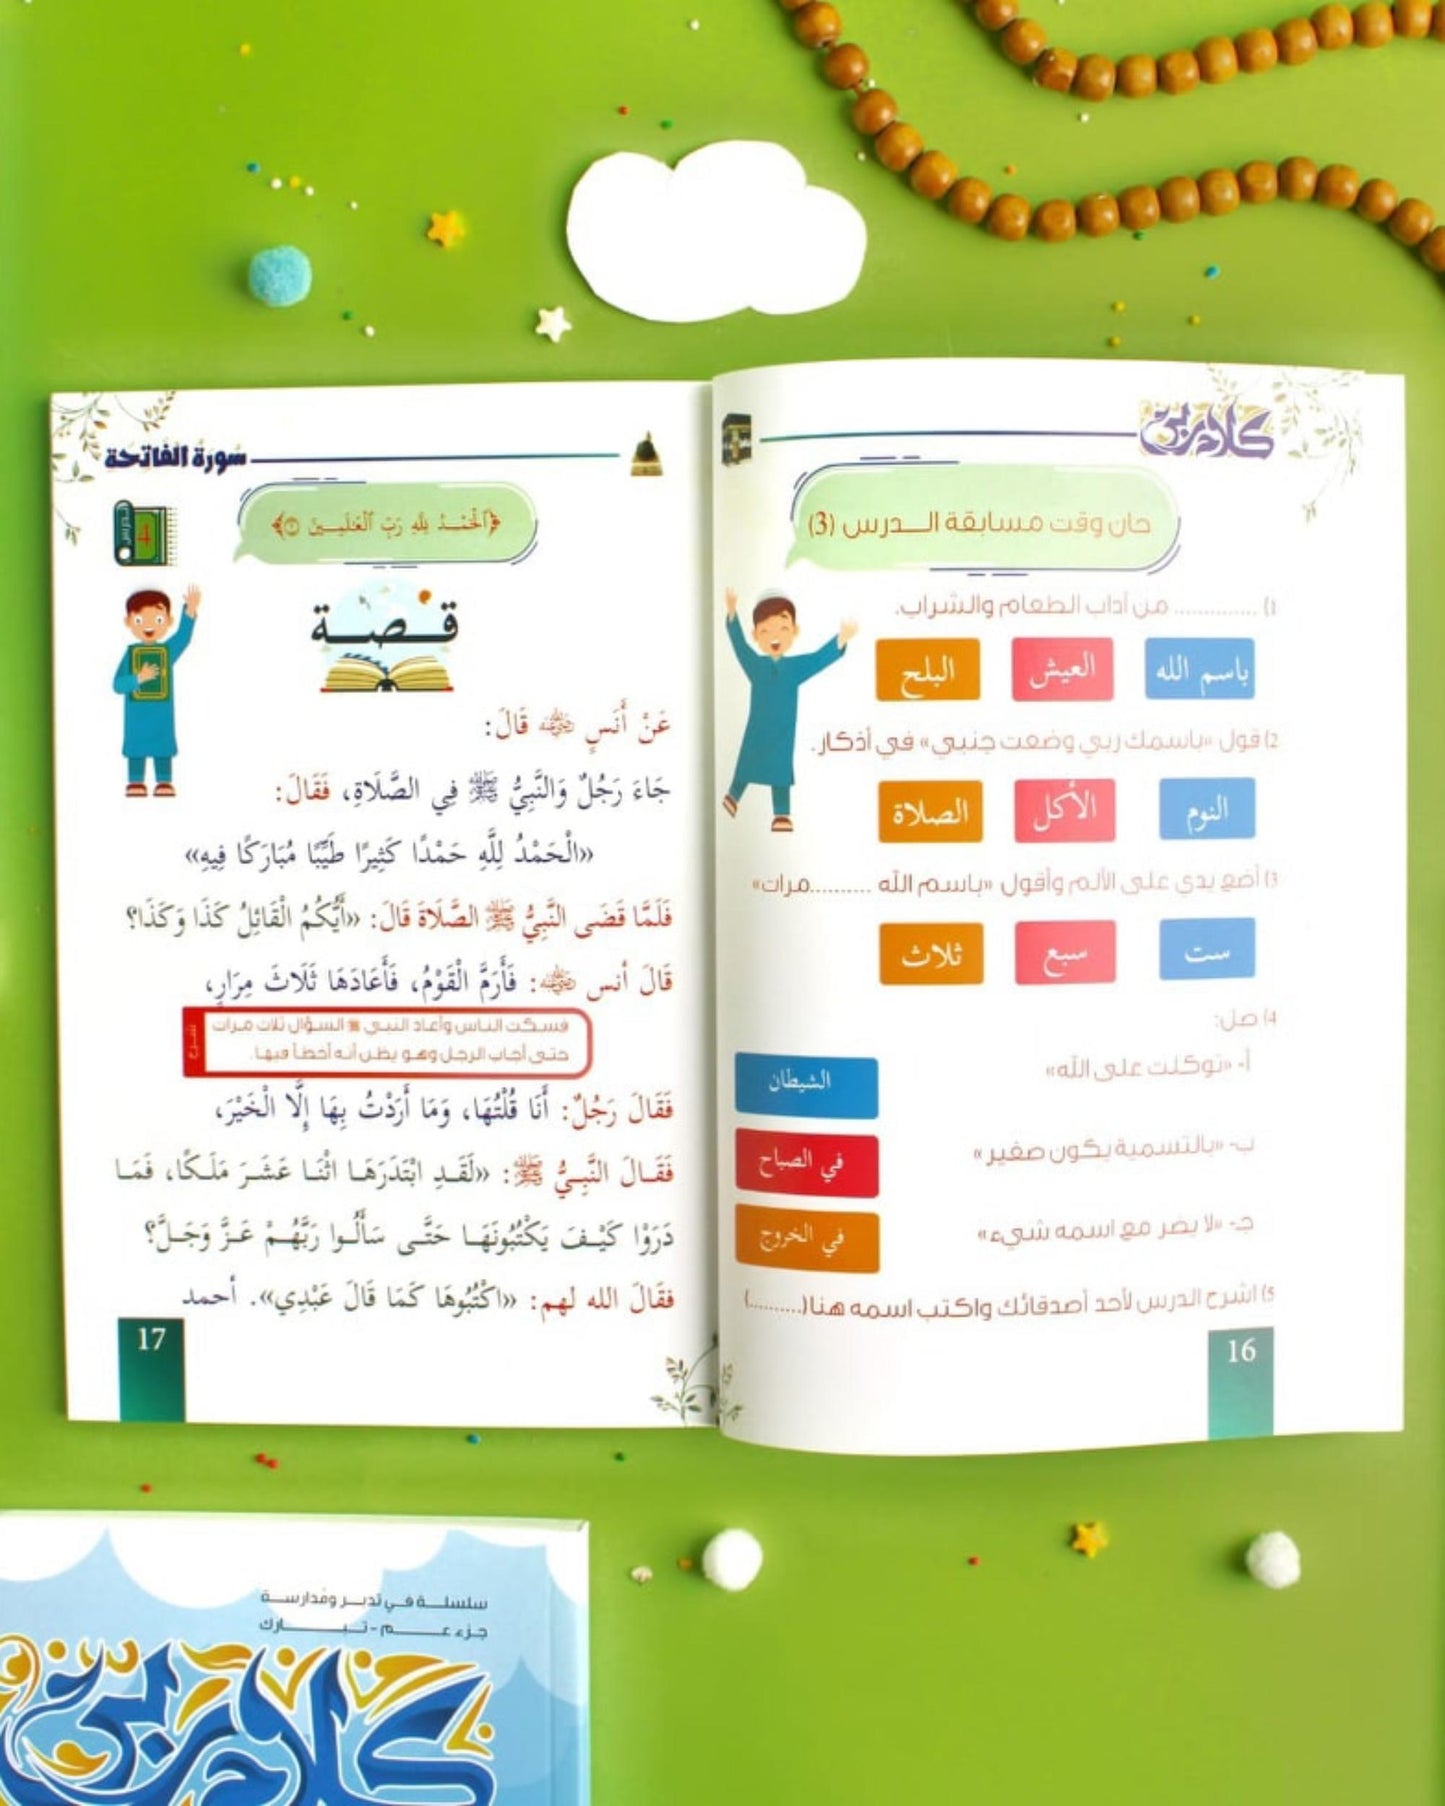 كلام ربي
حان وقت مسابقة الـــدرس (3)
1) .............. من آداب الطعام والشراب.
باسم الله
العيش
البلح
2) قول «باسمك ربي وضعت جنبي» في أذكار.
النوم
الأكل
الصلاة
3) أضع يدي على الألم وأقول «باسم الله ..........مرات»
ست
سبع
ثلاث
4) صل:
أ- «توكلت على الله»
الشيطان
ب- «بالتسمية يكون صغير»
في الصباح
جـ- «لا يضر مع اسمه شيء»
في الخروج
5) اشرح الدرس لأحد أصدقائك واكتب اسمه هنا(..........)
16
سورة الفاتحة
الدرس
4
﴿ٱلْحَمْدُ لِلَّهِ رَبِّ ٱلْعَٰلَمِينَ ٢﴾
قـــصـــة
عَنْ أَنَسٍ ﵁ قَالَ:
جَاءَ رَجُلٌ وَالنَّبِيُّ ﷺ فِي الصَّلَاةِ، فَقَالَ:
«الْحَمْدُ لِلَّهِ حَمْدًا كَثِيرًا طَيِّبًا مُبَارَكًا فِيهِ»
فَلَمَّا قَضَى النَّبِيُّ ﷺ الصَّلَاةَ قَالَ: «أَيُّكُمُ الْقَائِلُ كَذَا وَكَذَا؟
قَالَ أنس ﵁: فَأَرَمَّ الْقَوْمُ، فَأَعَادَهَا ثَلَاثَ مِرَارٍ،
شرح
فسكت الناس وأعاد النبي ﷺ السؤال ثلاث مرات
حتى أجاب الرجل وهو يظن أنه أخطأ فيها.
فَقَالَ رَجُلٌ: أَنَا قُلْتُهَا، وَمَا أَرَدْتُ بِهَا إِلَّا الْخَيْرَ،
فَقَـالَ النَّبِـيُّ ﷺ: «لَقَـدِ ابْتَدَرَهَـا اثْنَـا عَشَـرَ مَلَـكًا، فَمَـا
دَرَوْا كَيْـفَ يَكْتُبُونَهَـا حَتَّـى سَأَلُـوا رَبَّهُـمْ عَـزَّ وَجَـلَّ؟
فقَالَ الله لهم: «اكْتُبُوهَا كَمَا قَالَ عَبْدِي». أحمد
17
سلسلـــة فـي تدبـــر ومُدارســـة
جـزء عـــــــم - تـبـــــــارك
كلام ربي